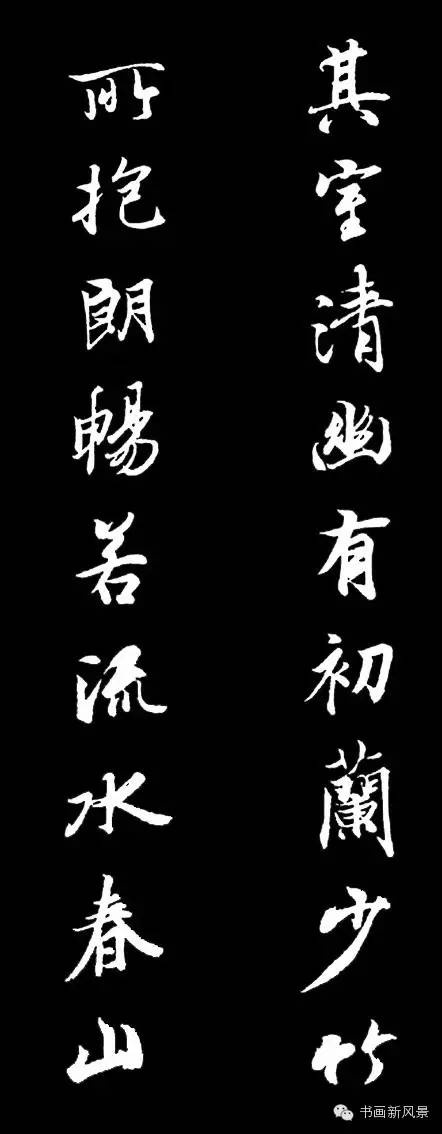 其室清幽有初蘭少竹
所抱朗暢若流水春山
书画新风景